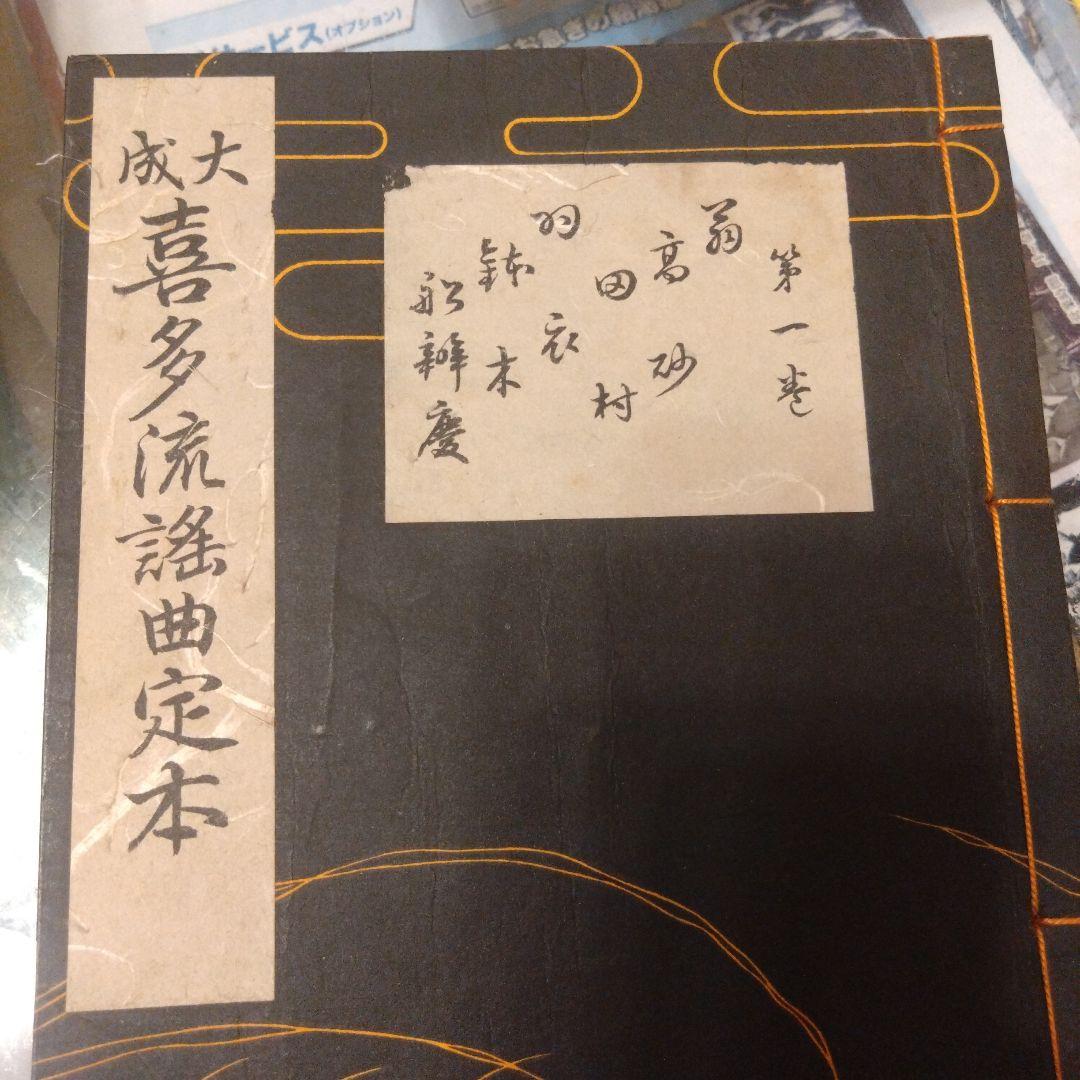 大成
喜多流謡曲定本
第一巻
翁
高砂
田村
羽衣
鉢木
船辨慶
サービス(オプション)